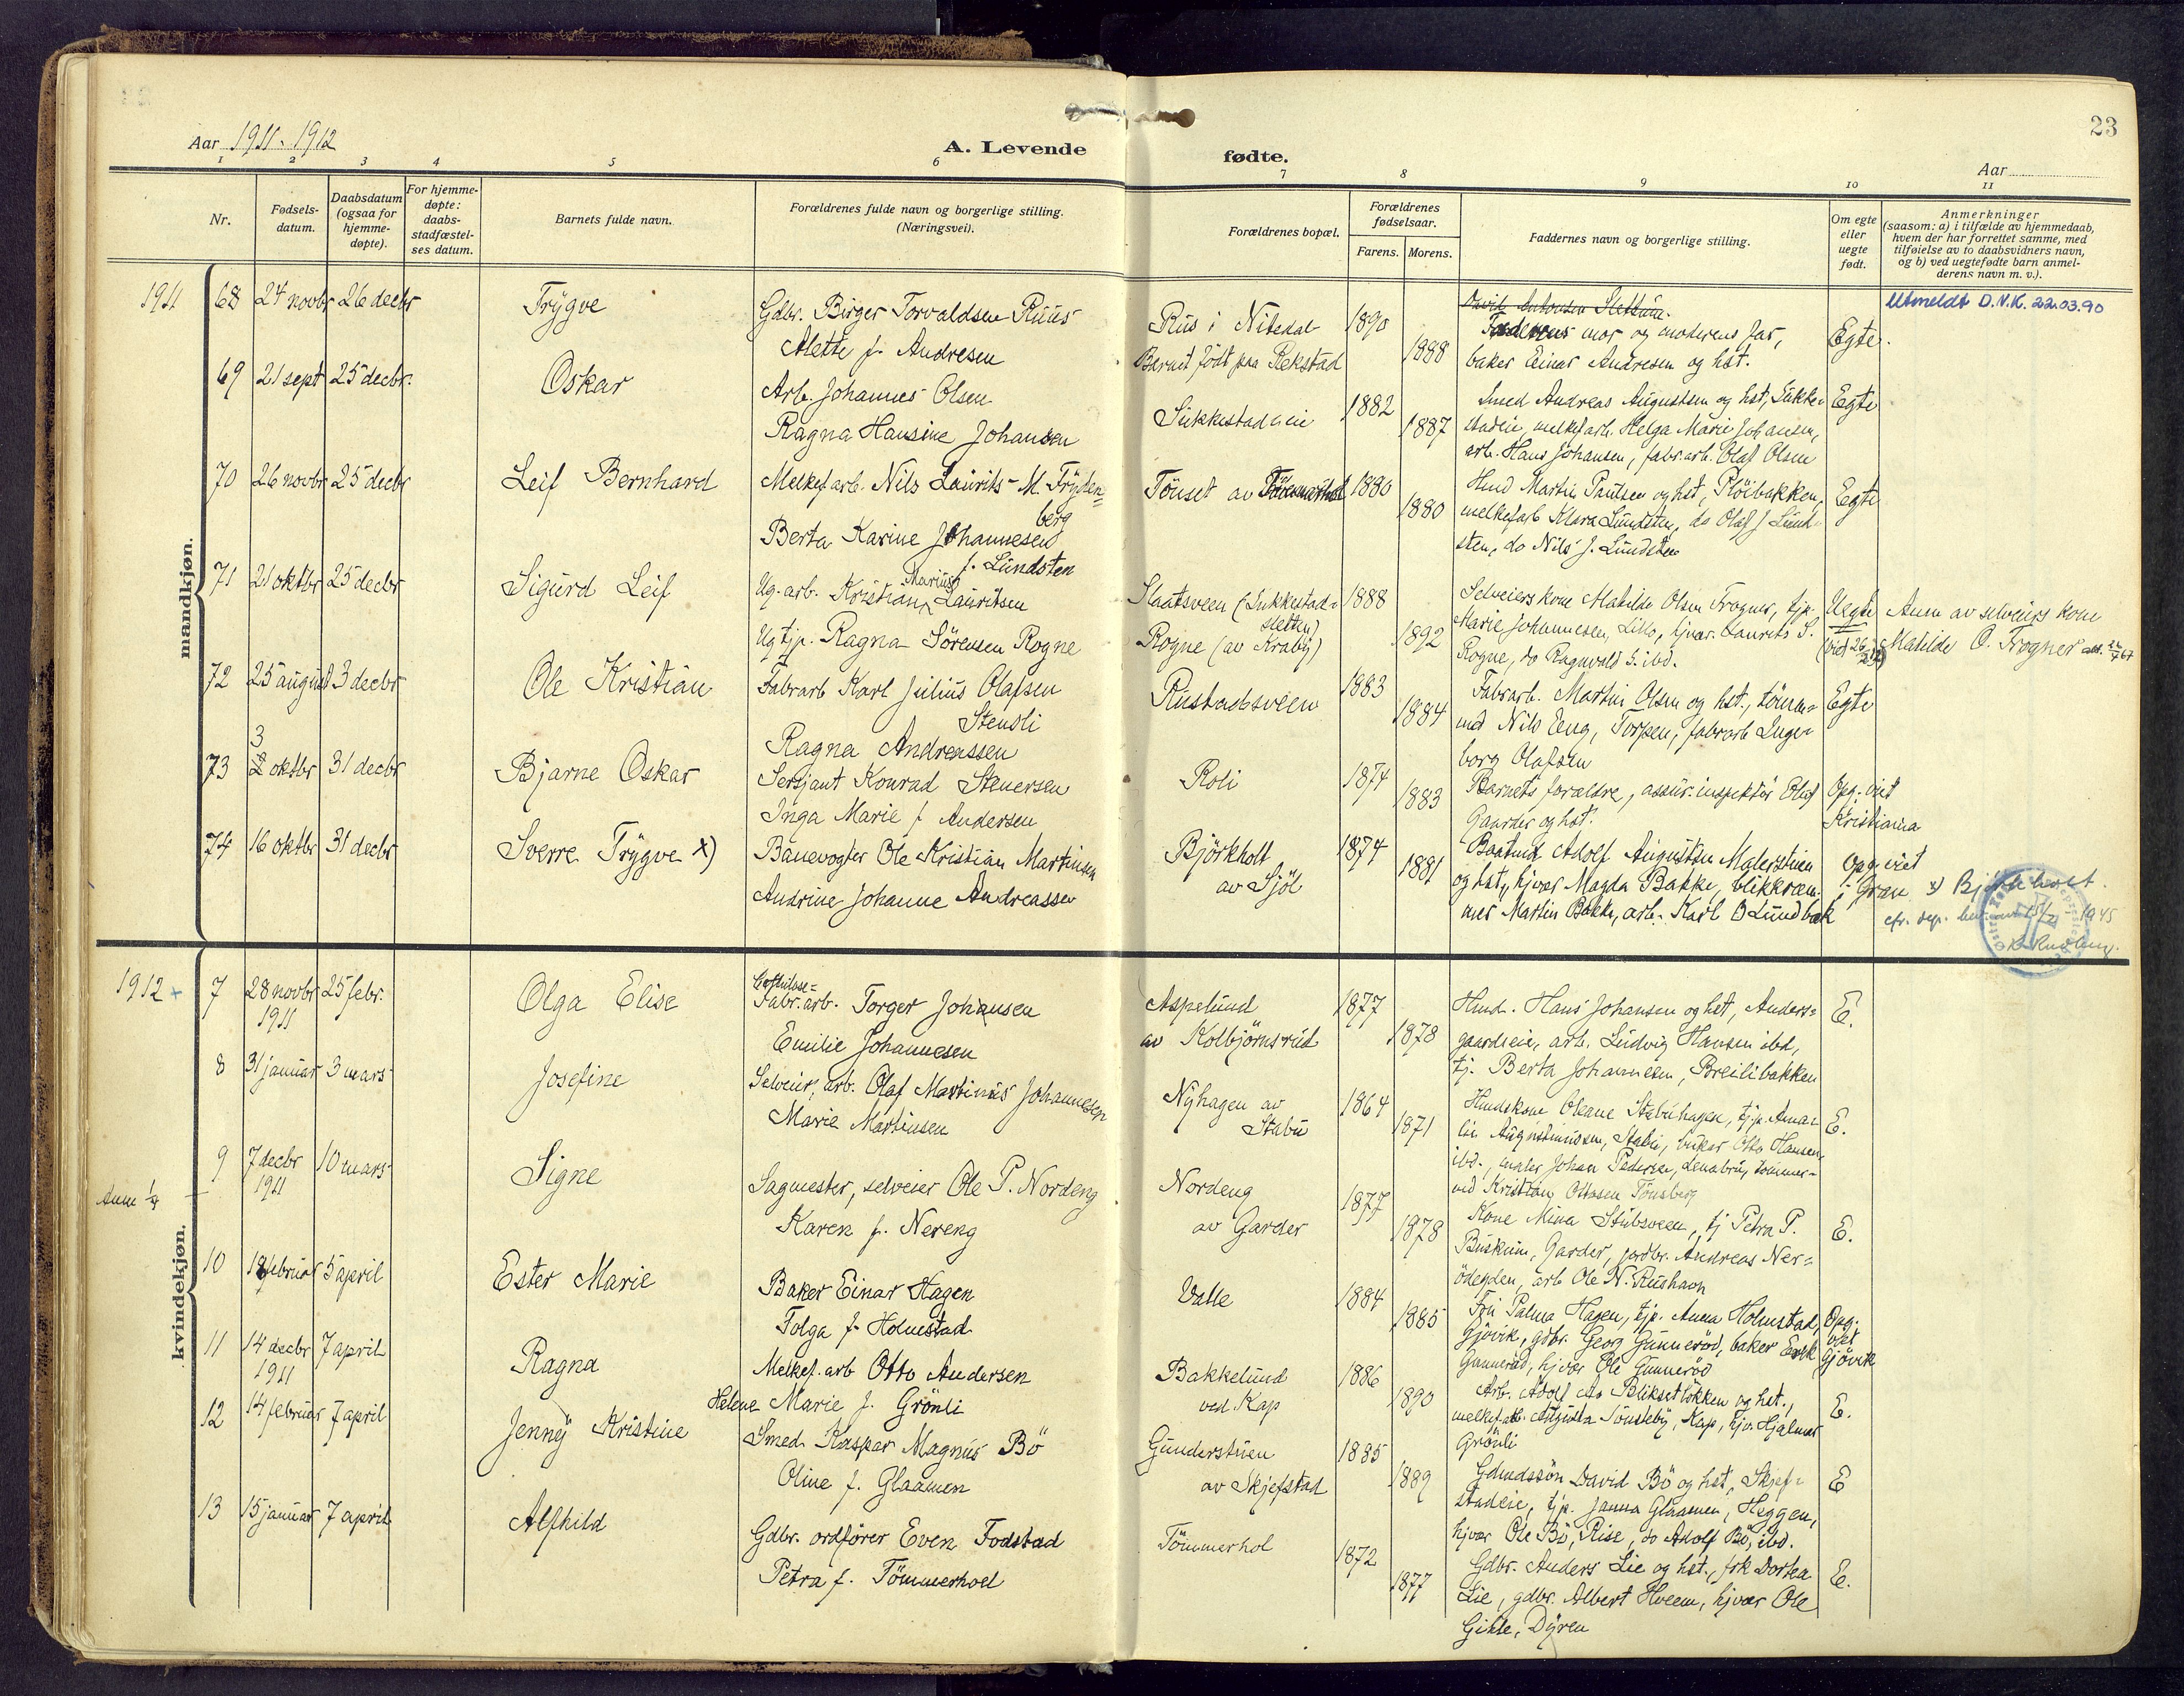 23
Aar 1911-1912
A. Levende fødte.
Aar
1 2 3 4 5 6 7 8 9 10 11
Nr.
Fødsels-
datum.
Daabsdatum
(ogsaa for
hjemme-
døpte).
For hjemme-
døpte:
daabs-
stadfæstel-
ses datum.
Barnets fulde navn.
Forældrenes fulde navn og borgerlige stilling.
(Næringsvei).
Forældrenes bopæl.
Forældrenes
fødselsaar.
Farens. Morens.
Faddernes navn og borgerlige stilling.
Om egte
eller
uegte
født.
Anmerkninger
(saasom: a) i tilfælde av hjemmedaab,
hvem der har forrettet samme, med
tilføielse av to daabsvidners navn,
og b) ved uegtefødte barn anmel-
derens navn m. v.).
mandkjøn.
1911 68 24 novbr 26 decbr Trygve
Gdbr. Birger Torvaldsen Ruus
Alette f. Andresen
Rus i Nitedal
Barnet födt paa Rekstad
1890
1888
mor og moderens far,
baker Einar Andresen og hst.
Egte
Utmeldt D.N.K. 22.03.90
69 21 sept 25 decbr. Oskar
Arb. Johannes Olsen
Ragna Hansine Johansen
Sukkestadeie
1882
1887
Smed Andreas Augustsen og hst, Sukke-
stadeie, melkef.arb. Helga Marie Johansen,
arb. Hans Johansen, fabr.arb. Olaf Olsen
Egte
70 26 novbr 25 decbr Leif Bernhard
Melkef.arb. Nils Laurits M. Fryden=
berg
Berta Karine Johannesen
f. Lundsten
Tönset av
1880
1880
Hmd Martin Paulsen og hst, Plöibakken,
melkefarb Klara Lundsten, do Olaf J. Lund-
sten, do Nils J. Lundsten
Egte
71 21 oktbr 25 decbr Sigurd Leif
Ug. arb. Kristian Marius Lauritsen
Ug tjp. Ragna Sörensen Rogne
Slaatsveen (Sukkestad-
sletten)
Rogne (av Kraby)
1888
1892
Selveierskone Matilde Olsen Frogner, tjp.
Marie Johannesen, Lillo, hjvær. Laurits S.
Rogne, do Ragnvald S. ibd.
Uegte
Anm av selveiers kone
Matilde O. Frogner
72 25 august 3 decbr Ole Kristian
Fabrarb Karl Julius Olafsen
Stensli
Ragna Andreassen
Rustadsveen
1883
1884
Fabrarb. Martin Olsen og hst., tömm=
md Nils Eeng, Torpen, fabrarb Inge-
borg Olafsen
Egte
73 3 2 oktbr 31 decbr Bjarne Oskar
Sersjant Konrad Stenersen
Inga Marie f Andersen
Roli
1874
1883
Barnets forældre, assur.inspektör Olaf
Gaarder og hst.
Opg. viet
Kristiania
74 16 oktbr 31 decbr Sverre Trygve x)
Banevogter Ole Kristian Martinsen
Andrine Johanne Andreassen
Björkholt
av Sjöl
1874
1881
Baatmd Adolf Augustsen Malerstuen
og hst, hjvær Magda Bakke, blikkræm-
mer Martin Bakke, arb. Karl O Lundbak
Opg viet
i Gran
x) Bjørkholt.
1945
kvindekjøn.
1912 + 7 28 novbr 25 febr. Olga Elise
1911
Fabr. arb. Torger Johansen
Emilie Johannesen
Aspelund
av Kolbjörnsrud
1877
1878
Hmd. Hans Johansen og hst, Anders=
gaardseie, arb. Ludvig Hansen ibd,
tj. Berta Johannesen, Breilibakken
E.
8 31 januar 3 mars Josefine
Selveier, arb. Olaf Martinius Johannesen
Marie Martinsen
Nyhagen av
Stabu
1864
1871
Hmdskone Oleane Stabuhagen, tjp. Ama-
lie Augustinussen, Stabu, Otto Hansen
ibd., maler Johan Pedersen, Lenabru, tömmer-
md Kristian Ottosen Tönsberg
E.
Anm ¼
9 7 decbr 10 mars Signe
1911
Sagmester, selveier Ole P. Nordeng
Karen f. Nereng
Nordeng
av Garder
1877
1878
Kone Mina Stubsveen, tj Petra P.
Buskum, Garder, jordbr. Andreas Ner=
ödegden, arb Ole N. Rushavn
E.
10 18 februar 5 april Ester Marie
Baker Einar Hagen
Tolga f. Holmestad
Valle
1884
1885
Fru Palma Hagen, tjp. Anna Holmstad,
Gjövik, gdbr. Georg Gunneröd, baker Erik
Gunneröd, hjvær Ole Gunneröd
Opg.
viet
Gjövik
11 14 decbr 7 april Ragna
1911
Melkef. arb Otto Andersen
Helene Marie f. Grönli
Bakkelund
ved Kap
1886
1890
Arb. Adolf As Blikset lökken og hst.,
melkefarb. Augusta Sönsteby, Kap, hjv. Hjalmar
Grönli
E.
12 14 februar 7 april Jenny Kristine
Smed Kaspar Magnus Bö
Oline f. Glaamen
Gunderstuen
av Skjefstad
1885
1889
Gdmdssön David Bö og hst, Skjef=
stadeie, tjp. Janna Glaamen, Heggen,
hjvær Ole Bö, Rise, do Adolf Bö, ibd.
E
13 15 januar 7 april Alfhild
Gdbr. ordförer Even Fodstad
Petra f. Tömmerhoel
Tömmerhol
1872
1877
Gdbr. Anders Lie og hst., frk Dortea
Lie, gdbr. Albert Hveem, hjvær Ole
Gihle, Dyren
E.